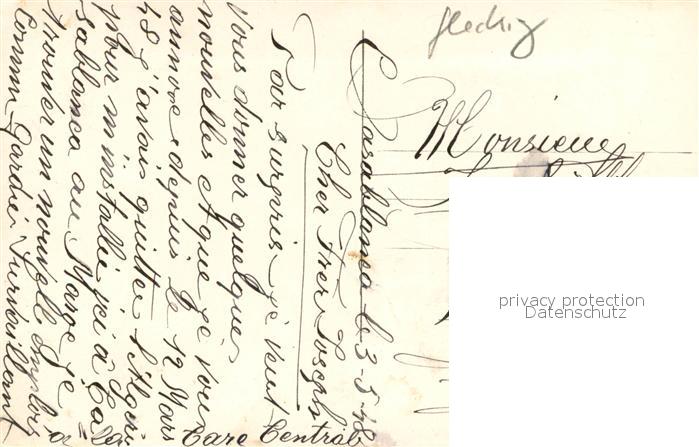 Casablanca le 3-5-48
Cher Frer Joseph
Par surpris je veut
Vous donner quelque
nouvelles et que je vou
annonce depuis le 12 Mars
48 j'avais quitter l'Algeri
pour m installer ici à Ca
sablanca au Maroc je
trouver un nouvelle emplois à la
Gare Central
Comm Gardie Surveillant
gleckig
Monsieur
privacy protection
Datenschutz